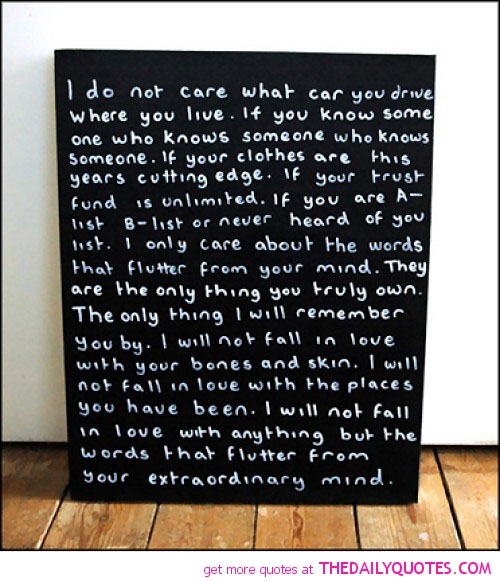 I do not care what car you drive
Where you live. If you know some
one who knows someone who knows
someone. If your clothes are this
years cutting edge. If your trust
fund is unlimited. If you are A-
list B-list or never heard of you
list. I only care about the words
that flutter from your mind. They
are the only thing you truly own.
The only thing I will remember
you by. I will not fall in love
with your bones and skin. I will
not fall in love with the places
you have been. I will not fall
in love with anything but the
words that flutter from
your extraordinary mind.
get more quotes at THEDAILYQUOTES.COM